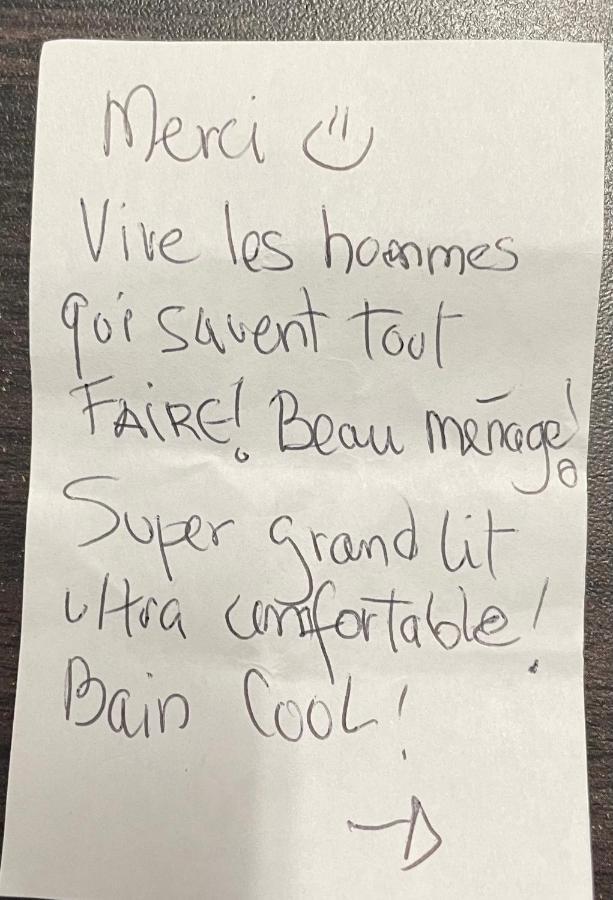 Merci
Vive les hommes
qui savent tout
FAIRE! Beau ménage!
Super grand lit
ultra comfortable!
Bain Cool!